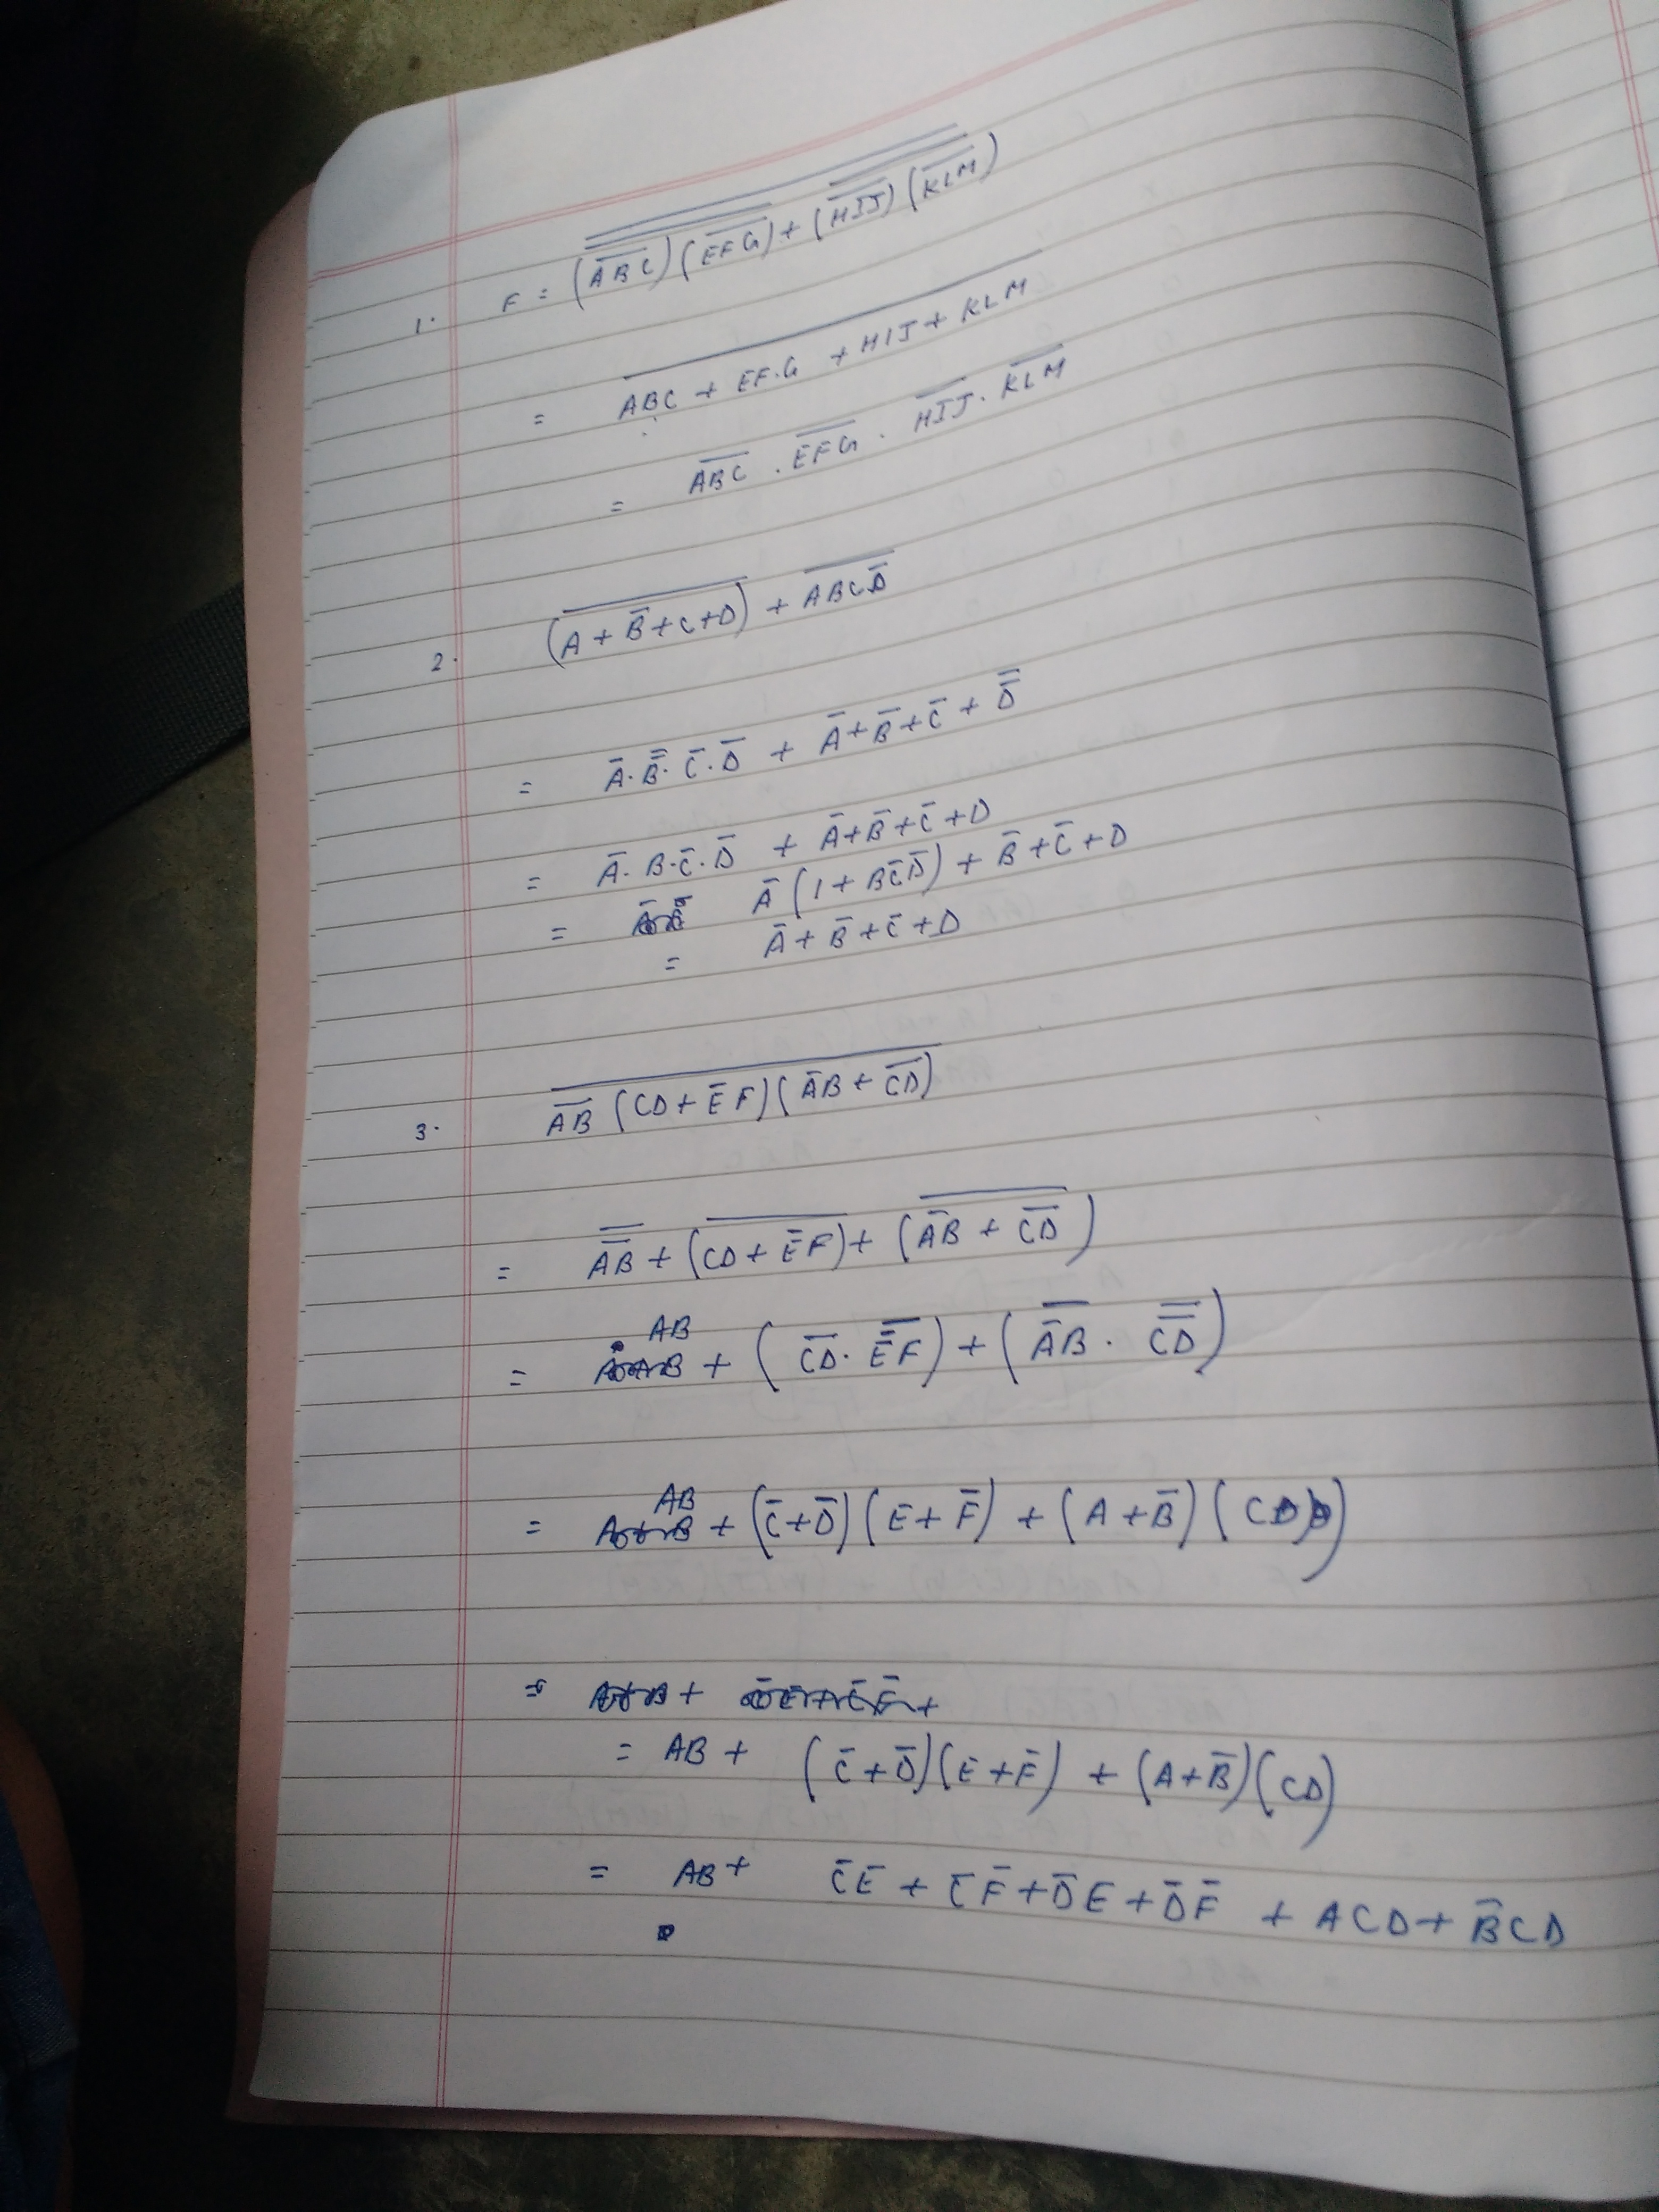 1. F = (A̅B̅C̅)(E̅F̅G̅) + (H̅I̅J̅)(K̅L̅M̅)
= ABC + EF·G + HIJ + KLM
= A̅B̅C̅ · E̅F̅G̅ · H̅I̅J̅ · K̅L̅M̅
2. (A + B̅ + C + D) + ABCD̅
= A̅ · B̿ · C̅ · D̅ + A̅ + B̅ + C̅ + D̿
= A̅ · B · C̅ · D̅ + A̅ + B̅ + C̅ + D
= A̅ (1 + BC̅D̅) + B̅ + C̅ + D
= A̅ + B̅ + C̅ + D
3. A̅B̅ (CD + E̅F)(A̅B + C̅D̅)
= A̿B̿ + (CD + E̅F) + (A̅B + C̅D̅)
= AB + (C̅D̅ · E̿F̅) + (A̅B · C̿D̿)
= AB + (C̅ + D̅)(E + F̅) + (A + B̅)(CD)
= AB + (C̅ + D̅)(E + F̅) + (A + B̅)(CD)
= AB + C̅E + C̅F̅ + D̅E + D̅F̅ + ACD + B̅CD